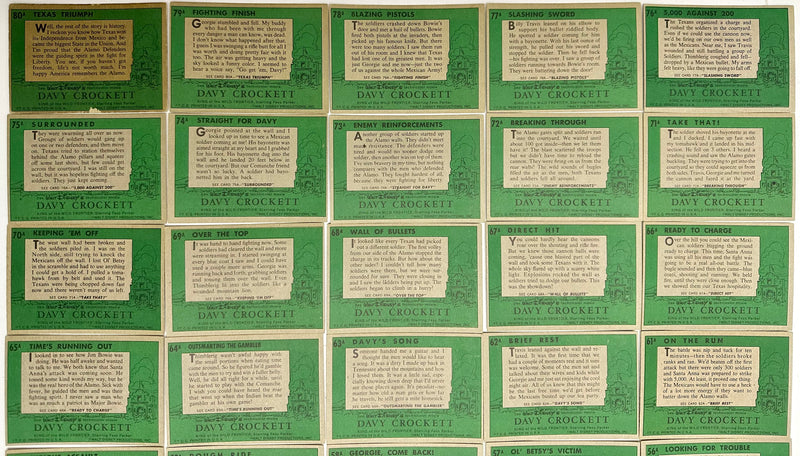 80A TEXAS TRIUMPH
Well, the rest of the story is history.
I reckon you know how Texas won
its independence from Mexico and became
the biggest State in the Union. And
I'm proud that the Alamo Defenders
were the guiding spirit in the fight for
Liberty. You see, if you haven't got
freedom, life's not worth much. I'm
happy America remembers the Alamo.
Walt Disney's
DAVY CROCKETT
79A FIGHTING FINISH
Georgie stumbled and fell. My buddy
who had been with me through
every danger a man can know, was dead.
I don't know what happened after that.
I guess I was swinging a rifle butt for all I
was worth and doing pretty fair with it
too. The air was getting heavy and the
sky looked a funny color. I seemed to
hear a voice say, "Go get 'em, Davy!"
SEE CARD 80A "TEXAS TRIUMPH"
Walt Disney's
DAVY CROCKETT
78A BLAZING PISTOLS
The soldiers crashed down Bowie's
door and met a hail of bullets. Bowie
fired both pistols at the invaders, then
picked up his famous knife. But there
were too many soldiers. I saw them run
out of his room and I knew that Texas
had lost one of its greatest men. It was
just Georgie and me now—just the two
of us against the whole Mexican Army!
SEE CARD 79A "FIGHTING FINISH"
Walt Disney's
DAVY CROCKETT
77A SLASHING SWORD
Billy Travis leaned on his elbow to
support his bullet riddled body.
He spotted a soldier coming for him
with a bayonet. With his last ounce of
strength, he pulled out his sword and
stopped the soldier. Then he fell back
—his fighting was over. I saw a group of
soldiers running towards Bowie's room.
They were battering down the door!
SEE CARD 78A "BLAZING PISTOLS"
Walt Disney's
DAVY CROCKETT
76A 5,000 AGAINST 200
The Texans organized a charge and
met the soldiers in the courtyard.
Even if we could the cannon now,
we'd be firing on our own men as well
as the Mexicans. Near me, I saw Travis
wounded and still battling a group of
soldiers. Thimblerig coughed and fell—
dropped by a Mexican bullet. My arms
felt heavy, like they were going to fall off.
SEE CARD 77A "SLASHING SWORD"
Walt Disney's
DAVY CROCKETT
75A SURROUNDED
They were swarming all over us now.
Groups of soldiers would gang up
on one or two defenders, and then move
on. Texans tried to station themselves
behind the Alamo pillars and squeeze
off some last shots, but few could get
across the courtyard. I was still on the
wall, but it was hopeless fighting off all
of the soldiers. They just kept coming!
SEE CARD 76A "5,000 AGAINST 200"
Walt Disney's
DAVY CROCKETT
74A STRAIGHT FOR DAVY
Georgie pointed at the wall and I
looked up in time to see a Mexican
soldier coming at me! His bayonette was
aimed straight at my heart and I grabbed
for his foot. His bayonette dug into the
wall and he landed 20 feet below in
the courtyard. But our Comanche friend
wasn't so lucky. A soldier had bayo-
netted him in the back.
SEE CARD 75A "SURROUNDED"
Walt Disney's
DAVY CROCKETT
73A ENEMY REINFORCEMENTS
Another group of soldiers started up
the Alamo walls. They didn't meet
much resistance. The defenders were
tired and would no sooner dodge one
soldier, then another was on top of them.
I've seen bravery in my time, but nothing
compares with the men who defended
the Alamo. They fought hardest of all,
because they were fighting for liberty.
SEE CARD 74A "STRAIGHT FOR DAVY"
Walt Disney's
DAVY CROCKETT
72A BREAKING THROUGH
The Alamo gates split and soldiers ran
into the courtyard. We waited until
about 100 got inside—then we let them
have it! The blast scattered the troops
but we didn't have time to reload the
cannon. They were firing on us from the
walls too! The wild sounds of bugles
filled the air as the men, both Texans
and soldiers fell all around.
SEE CARD 73A "ENEMY REINFORCEMENTS"
Walt Disney's
DAVY CROCKETT
71A TAKE THAT!
The soldier shoved his bayonette at me
and I ducked. I came up fast with
my tomahawk and it landed in his mid-
section. He fell on 3 others. I heard a
crashing sound and saw the Alamo gates
buckling. They were trying to get into the
courtyard so they could squeeze us from
both sides. Travis, Georgie and me turned
the cannon and faced it at the yard.
SEE CARD 72A "BREAKING THROUGH"
Walt Disney's
DAVY CROCKETT
70A KEEPING 'EM OFF
The west wall had been broken and
the soldiers piled in. I was on the
North side, still trying to knock the
Mexicans off the wall. I lost Ol' Betsy
in the scramble and had to use anything
I could get a hold of. I pulled a toma-
hawk from by belt and used it. The
Texans were being chopped down fast
now and there weren't many of us left.
SEE CARD 71A "TAKE THAT!"
Walt Disney's
DAVY CROCKETT
69A OVER THE TOP
It was hand to hand fighting now. Some
soldiers had cleared the wall and more
were streaming in. I started swinging at
every blue coat I saw and I could have
used two more arms. Georgie was
running back and forth, grabbing soldiers
and tossing them over the wall. Even
Thimblerig lit into the soldiers like a
wounded mountain lion.
SEE CARD 70A "KEEPING 'EM OFF"
Walt Disney's
DAVY CROCKETT
68A WALL OF BULLETS
It looked like every Texan had picked
out a different soldier. The first volley
from our side of the Alamo stopped the
charge in its tracks. But how about the
other sides? I couldn't tell how many
soldiers were there, but we were sur-
rounded for sure. They were closing in
and I saw the ladders being put up. The
soldiers began to climb in a hurry!
SEE CARD 69A "OVER THE TOP"
Walt Disney's
DAVY CROCKETT
67A DIRECT HIT
You could hardly hear the cannons
over the shouting and rifle fire.
But we knew those cannon balls were
coming, 'cause one blasted part of the
wall and took some Texans with it. The
whole sky flared up with a scarey white
light. Explosions rocked the wall as
soldiers tried to dodge our bullets. This
was the showdown!
SEE CARD 68A "WALL OF BULLETS"
Walt Disney's
DAVY CROCKETT
66A READY TO CHARGE
Over the hill you could see the Mexi-
can soldiers hugging the ground
ready to charge. This time Santa Anna
was using all his men and the fight was
going to be a real all-out battle. The
bugle sounded and then they came—blue
coats, shouting and running. We held
fire, until they were close enough. Then
we showed them our Texas hospitality.
SEE CARD 67A "DIRECT HIT"
Walt Disney's
DAVY CROCKETT
65A TIME'S RUNNING OUT
I looked in to see how Jim Bowie was
doing. He was half awake and wanted
to talk to me. We both knew that Santa
Anna's attack was coming soon. He
tossed some kind words my way, but he
was the real hero of the Alamo. Sick with
fever, he guided the men and was their
fighting spirit. I never saw a man who
was as much a patriot as Major Bowie.
SEE CARD 66A "READY TO CHARGE"
Walt Disney's
DAVY CROCKETT
64A OUTSMARTING THE GAMBLER
Thimblerig wasn't awful happy with
the small portions when eating time
came around. So he figured he'd gamble
with the men to try and win a fuller belly.
Well, he did all right for a while, until
he started to play with the Comanche.
I wish you could have heard the roar
that went up when the Indian beat the
gambler at his own game!
SEE CARD 65A "TIME'S RUNNING OUT"
Walt Disney's
DAVY CROCKETT
63A DAVY'S SONG
Someone handed me a guitar and I
thought the men would like to hear
a song. It was a ditty I made up back in
Tennessee about the mountains and how
I loved them. It was a little sad, espe-
cially knowing down deep that I'd never
see those places again. It's peculiar—no
matter how old a man gets or how far
he travels, he still gets a mite homesick.
SEE CARD 64A "OUTSMARTING THE GAMBLER"
Walt Disney's
DAVY CROCKETT
62A BRIEF REST
Travis leaned against the wall and re-
laxed. It was the first time that we
had a couple of moments rest and it sure
was welcome. Some of the men sat and
talked about their wives and kids while
Georgie and me just sat enjoying the cool
night air. All of us knew that this might
be the last rest before we'd get
before the Mexicans busted up our tea
party.
SEE CARD 63A "DAVY'S SONG"
Walt Disney's
DAVY CROCKETT
61A ON THE RUN
The battle was nip and tuck for ten
minutes—then the soldiers broke
ranks and ran. We'd beaten off the first
attack but there were only 300 soldiers
and Santa Anna was prepared to strike
with 5,000. At least, it proved one thing.
The Mexicans would have to use a heck
of a lot more energy if they want to
batter down the Alamo walls.
SEE CARD 62A "BRIEF REST"
Walt Disney's
DAVY CROCKETT
59A ROUGH RIDE
58A GEORGIE, COME BACK!
57A OL' BETSY'S VICTIM
56A LOOKING FOR TROUBLE